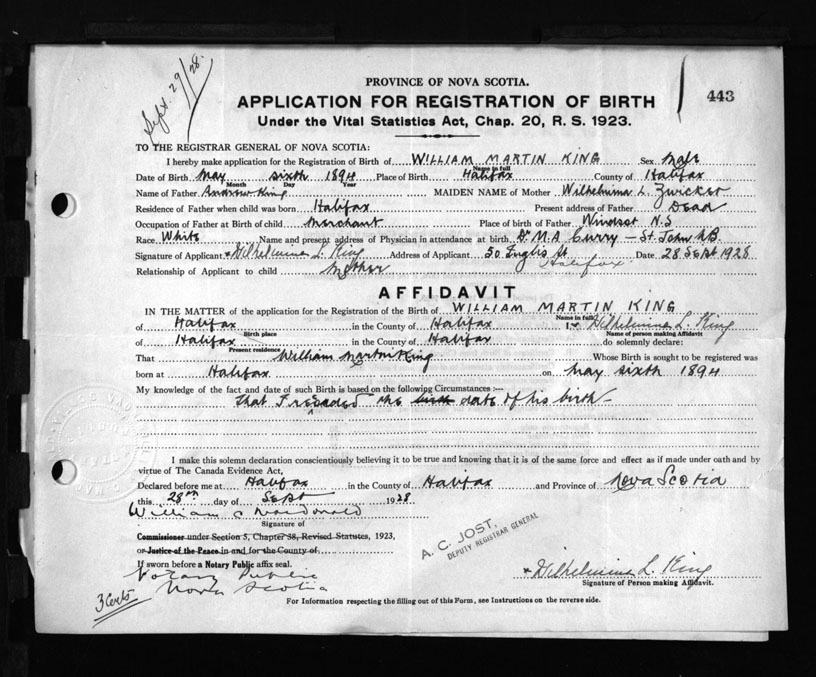 Sept. 29/28.
PROVINCE OF NOVA SCOTIA.
443
APPLICATION FOR REGISTRATION OF BIRTH
Under the Vital Statistics Act, Chap. 20, R. S. 1923.
TO THE REGISTRAR GENERAL OF NOVA SCOTIA:
I hereby make application for the Registration of Birth of WILLIAM MARTIN KING Sex Male
Name in full
Date of Birth May sixth 1894 Place of Birth Halifax County of Halifax
Month Day Year
Name of Father Andrew King MAIDEN NAME of Mother Wilhelmina L. Zwicker
Residence of Father when child was born Halifax Present address of Father Dead
Occupation of Father at Birth of child Merchant Place of birth of Father Windsor N.S
Race White Name and present address of Physician in attendance at birth Dr M.A Curry - St. John N.B.
Signature of Applicant Wilhelmina L. King Address of Applicant 50 Inglis St Halifax. Date 28 Sept 1928
Relationship of Applicant to child Mother
AFFIDAVIT
IN THE MATTER of the application for the Registration of the Birth of WILLIAM MARTIN KING
Name in full
of Halifax in the County of Halifax I Wilhelmina L. King
Birth place Name of person making Affidavit
of Halifax in the County of Halifax do solemnly declare:
Present residence
That William Martin King Whose Birth is sought to be registered was
born at Halifax on May sixth 1894
My knowledge of the fact and date of such Birth is based on the following Circumstances :—
That I recorded the birth date of his birth -
I make this solemn declaration conscientiously believing it to be true and knowing that it is of the same force and effect as if made under oath and by
virtue of The Canada Evidence Act,
Declared before me at Halifax in the County of Halifax and Province of Nova Scotia
this 28th day of Sept 1928
William C Macdonald
Signature of
Commissioner under Section 5, Chapter 38, Revised Statutes, 1923,
or Justice of the Peace in and for the County of
If sworn before a Notary Public affix seal.
Notary Public
Nova Scotia
A. C. JOST,
DEPUTY REGISTRAR GENERAL
Wilhelmina L. King
Signature of Person making Affidavit.
3 Certs
For Information respecting the filling out of this Form, see Instructions on the reverse side.